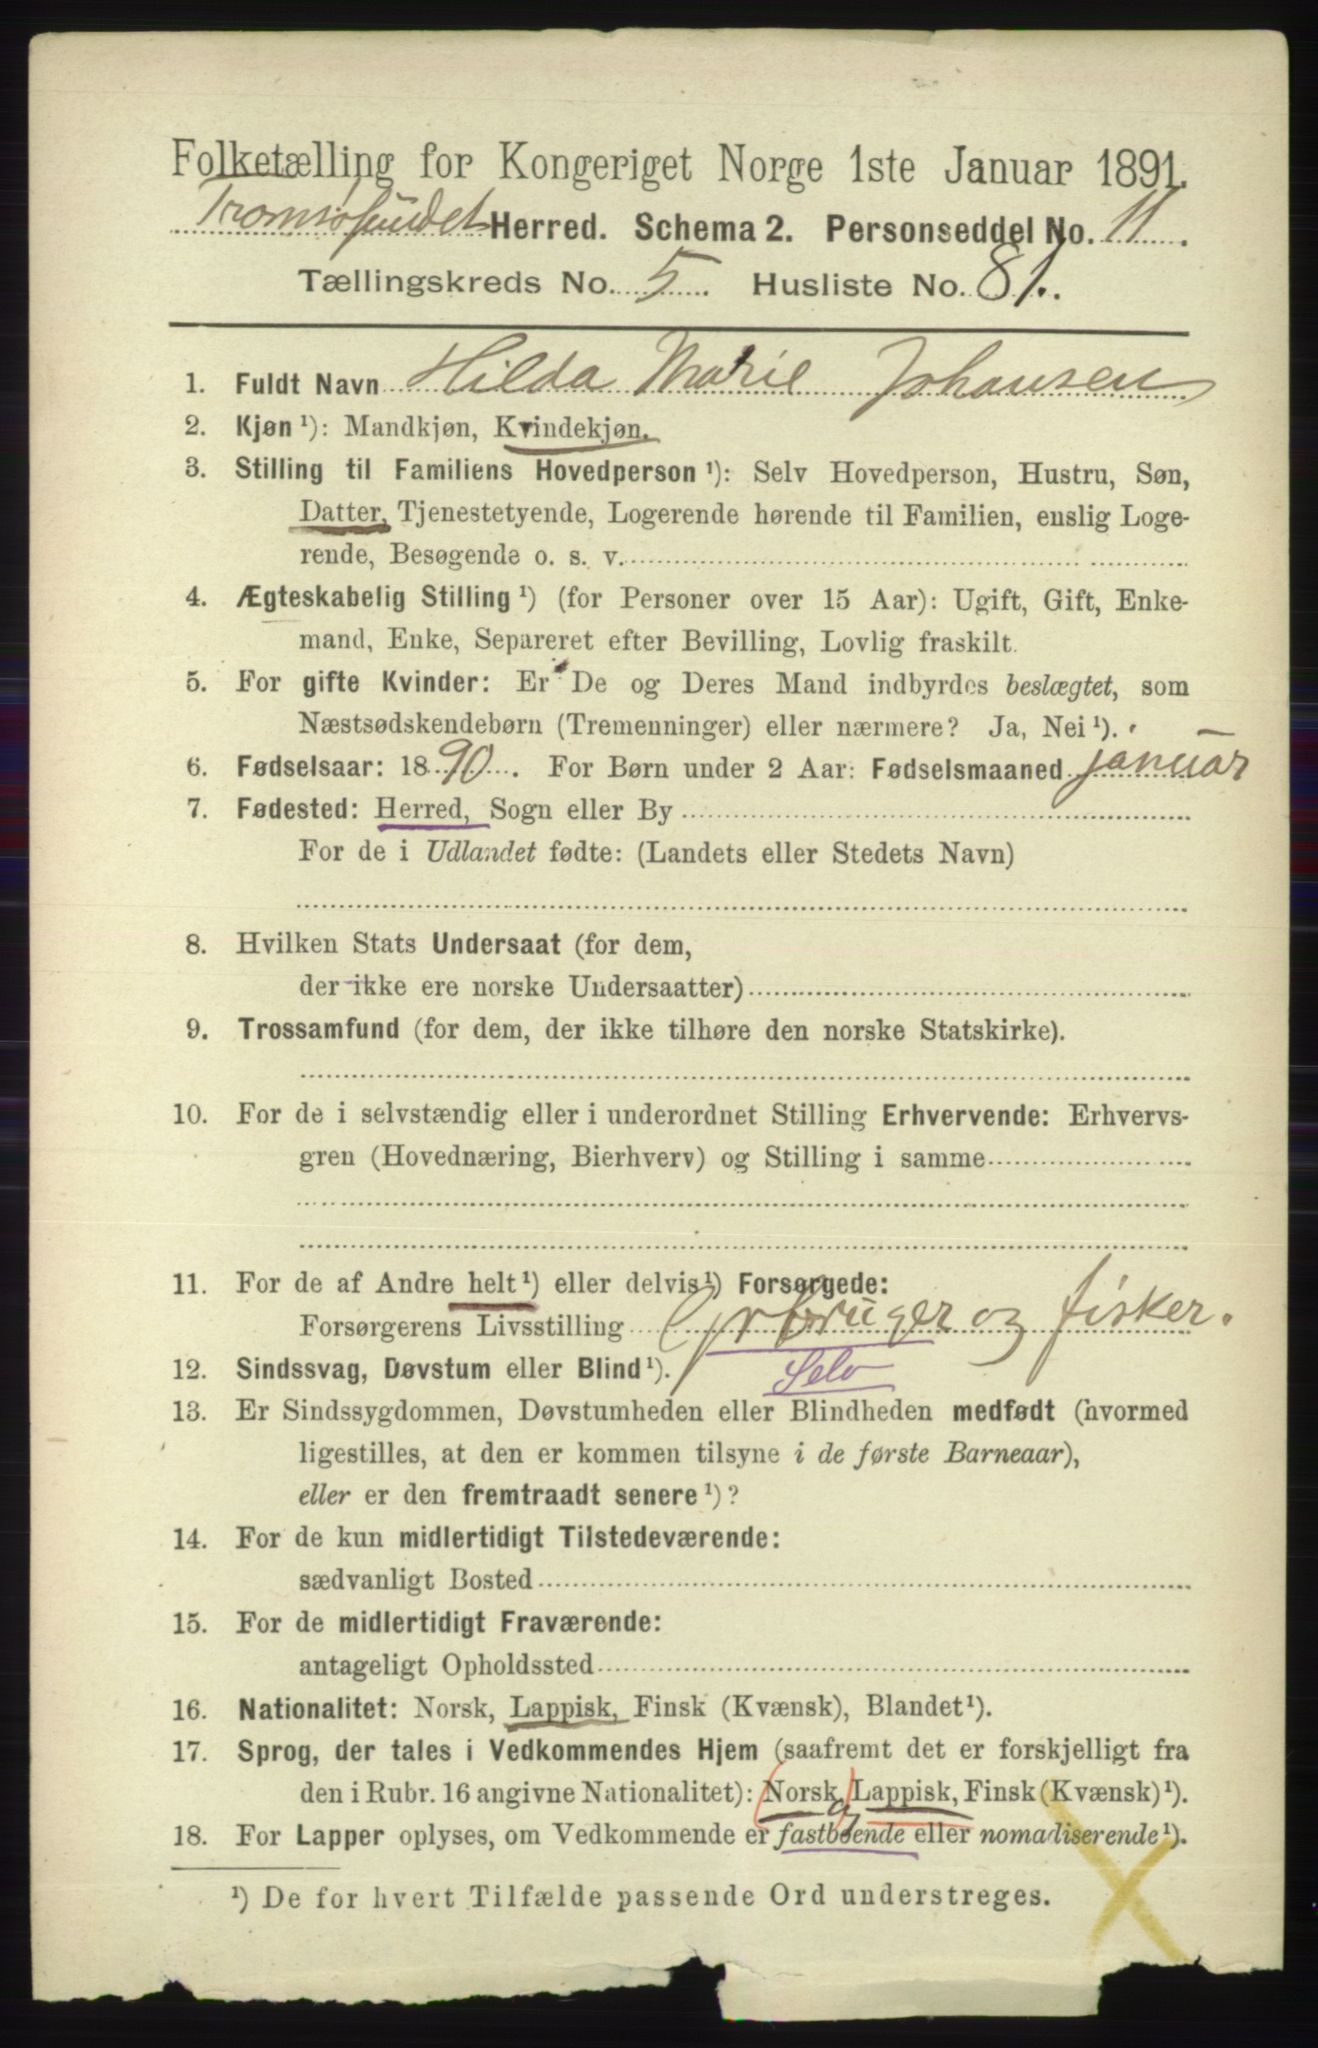 Folketælling for Kongeriget Norge 1ste Januar 1891.
Tromsøsundet Herred. Schema 2. Personseddel No. 11.
Tællingskreds No. 5. Husliste No. 81.
1. Fuldt Navn Hilda Marie Johansen
2. Kjøn ¹): Mandkjøn, Kvindekjøn.
3. Stilling til Familiens Hovedperson ¹): Selv Hovedperson, Hustru, Søn,
Datter, Tjenestetyende, Logerende hørende til Familien, enslig Loge-
rende, Besøgende o. s. v.
4. Ægteskabelig Stilling ¹) (for Personer over 15 Aar): Ugift, Gift, Enke-
mand, Enke, Separeret efter Bevilling, Lovlig fraskilt.
5. For gifte Kvinder: Er De og Deres Mand indbyrdes beslægtet, som
Næstsødskendebørn (Tremenninger) eller nærmere? Ja, Nei ¹).
6. Fødselsaar: 1890. For Børn under 2 Aar: Fødselsmaaned januar
7. Fødested: Herred, Sogn eller By
For de i Udlandet fødte: (Landets eller Stedets Navn)
8. Hvilken Stats Undersaat (for dem,
der ikke ere norske Undersaatter)
9. Trossamfund (for dem, der ikke tilhøre den norske Statskirke).
10. For de i selvstændig eller i underordnet Stilling Erhvervende: Erhvervs-
gren (Hovednæring, Bierhverv) og Stilling i samme
11. For de af Andre helt ¹) eller delvis ¹) Forsørgede:
Forsørgerens Livsstilling Grbruger og fisker.
12. Sindssvag, Døvstum eller Blind ¹). Selv
13. Er Sindssygdommen, Døvstumheden eller Blindheden medfødt (hvormed
ligestilles, at den er kommen tilsyne i de første Barneaar),
eller er den fremtraadt senere ¹)?
14. For de kun midlertidigt Tilstedeværende:
sædvanligt Bosted
15. For de midlertidigt Fraværende:
antageligt Opholdssted
16. Nationalitet: Norsk, Lappisk, Finsk (Kvænsk), Blandet ¹).
17. Sprog, der tales i Vedkommendes Hjem (saafremt det er forskjelligt fra
den i Rubr. 16 angivne Nationalitet): Norsk, og Lappisk, Finsk (Kvænsk) ¹).
18. For Lapper oplyses, om Vedkommende er fastboende eller nomadiserende ¹).
¹) De for hvert Tilfælde passende Ord understreges.